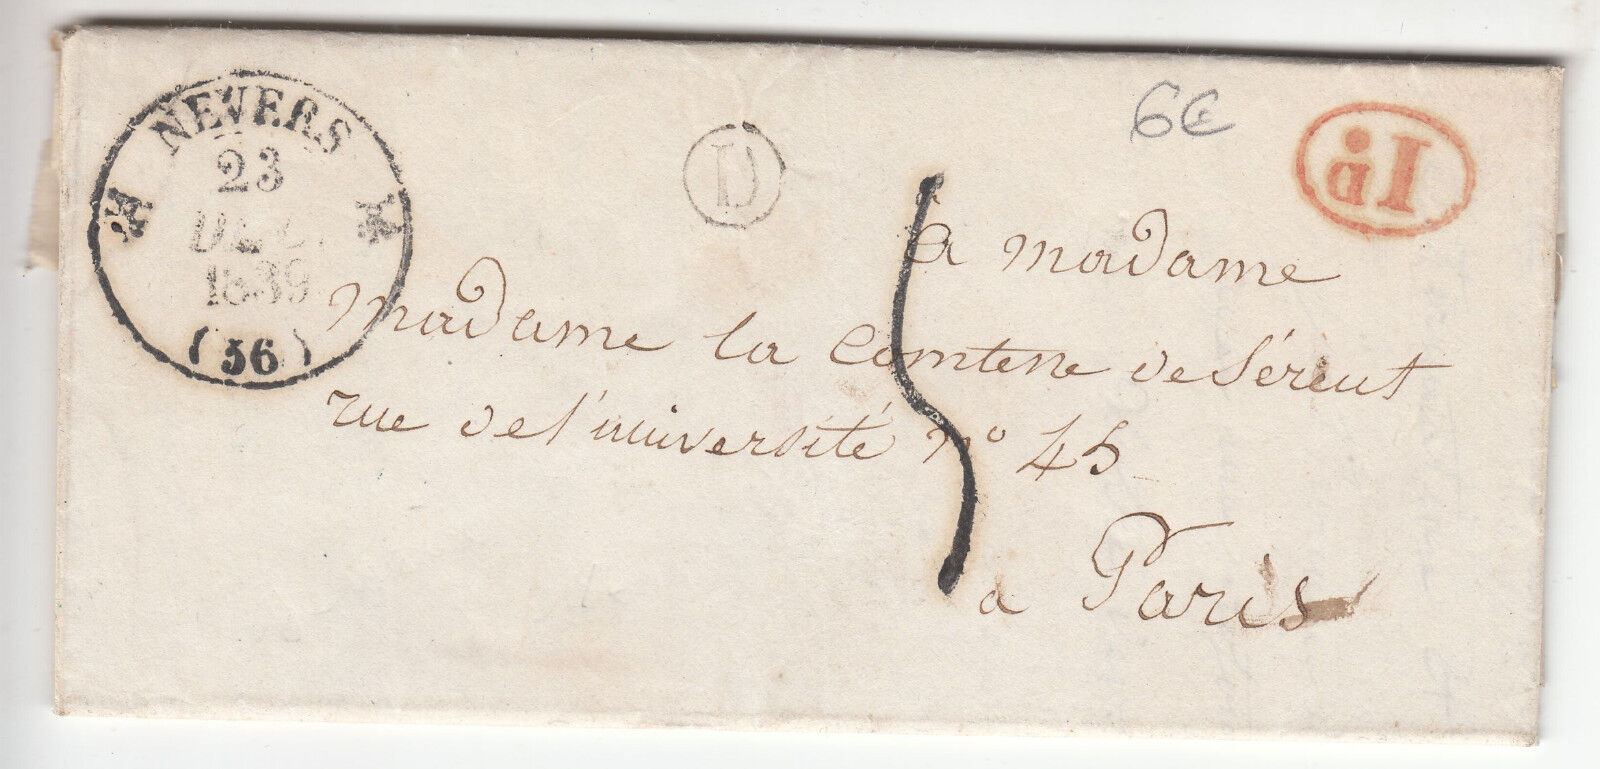 NEVERS
23
DEC.
1839
(56)
D
6€
1D
5
a madame
madame la comtesse de Sérent
rue de l'université n° 45
a Paris